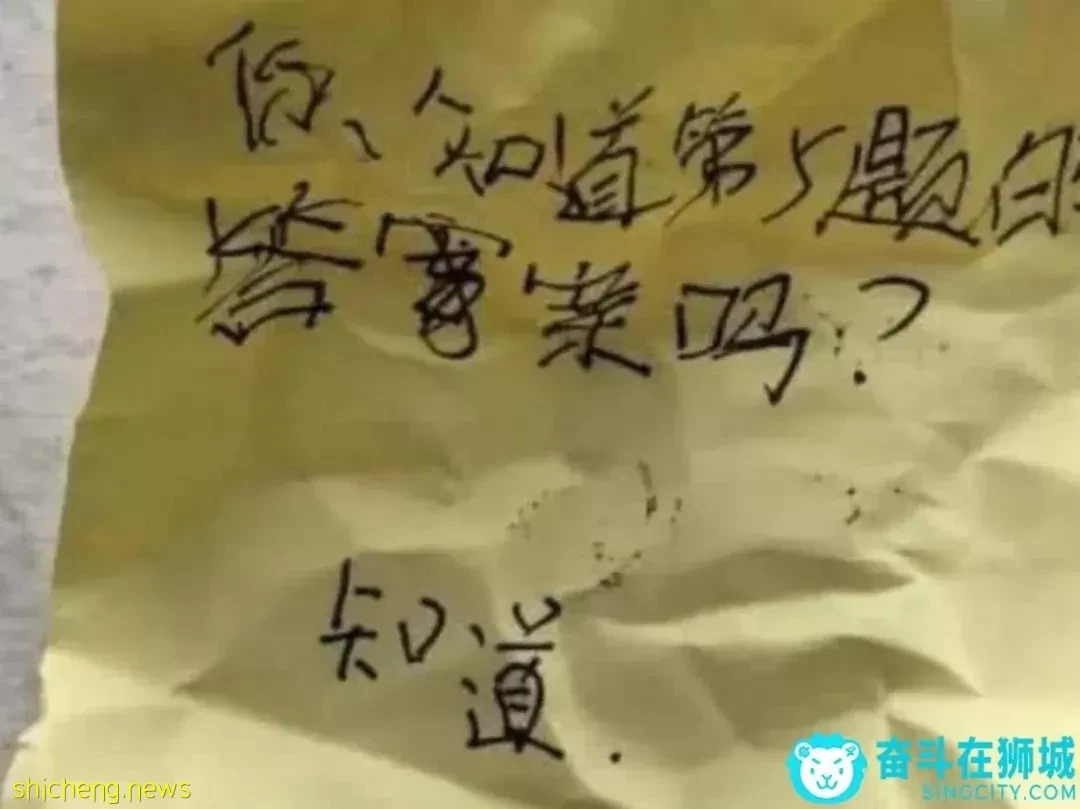 你知道第5题的
答案案吗?
知道.
shicheng.news
奋斗在狮城
SINGCITY.COM